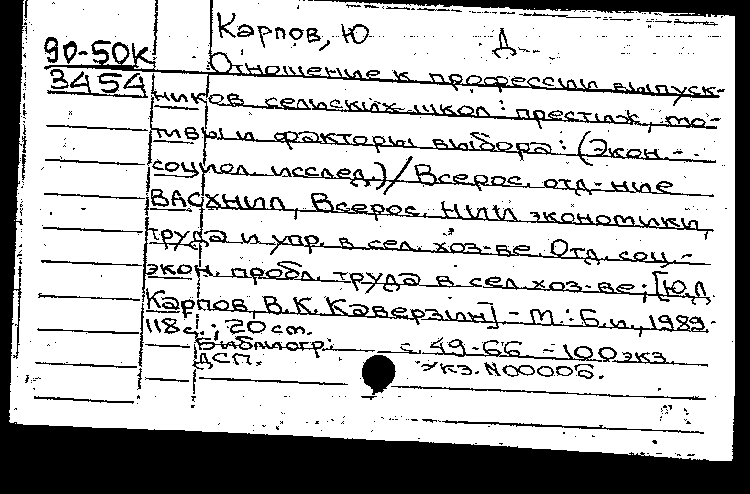 Карпов, Ю Д
90-50К
3454
Отношение к профессии выпуск-
ников сельских школ: престиж, мо-
тивы и факторы выбора: (Экон.-
социол. исслед.)/Всерос. отд-ние
ВАСХНИЛ, Всерос. НИИ экономики,
труда и упр. в сел. хоз-ве. Отд. соц.-
экон. пробл. труда в сел. хоз-ве; [Ю.Д.
Карпов, В.К. Каверзин] - М.: Б.и., 1989.-
118с.; 20 см.
Библиогр: с. 49-66. - 100 экз.
ДСП. Экз. N00006.